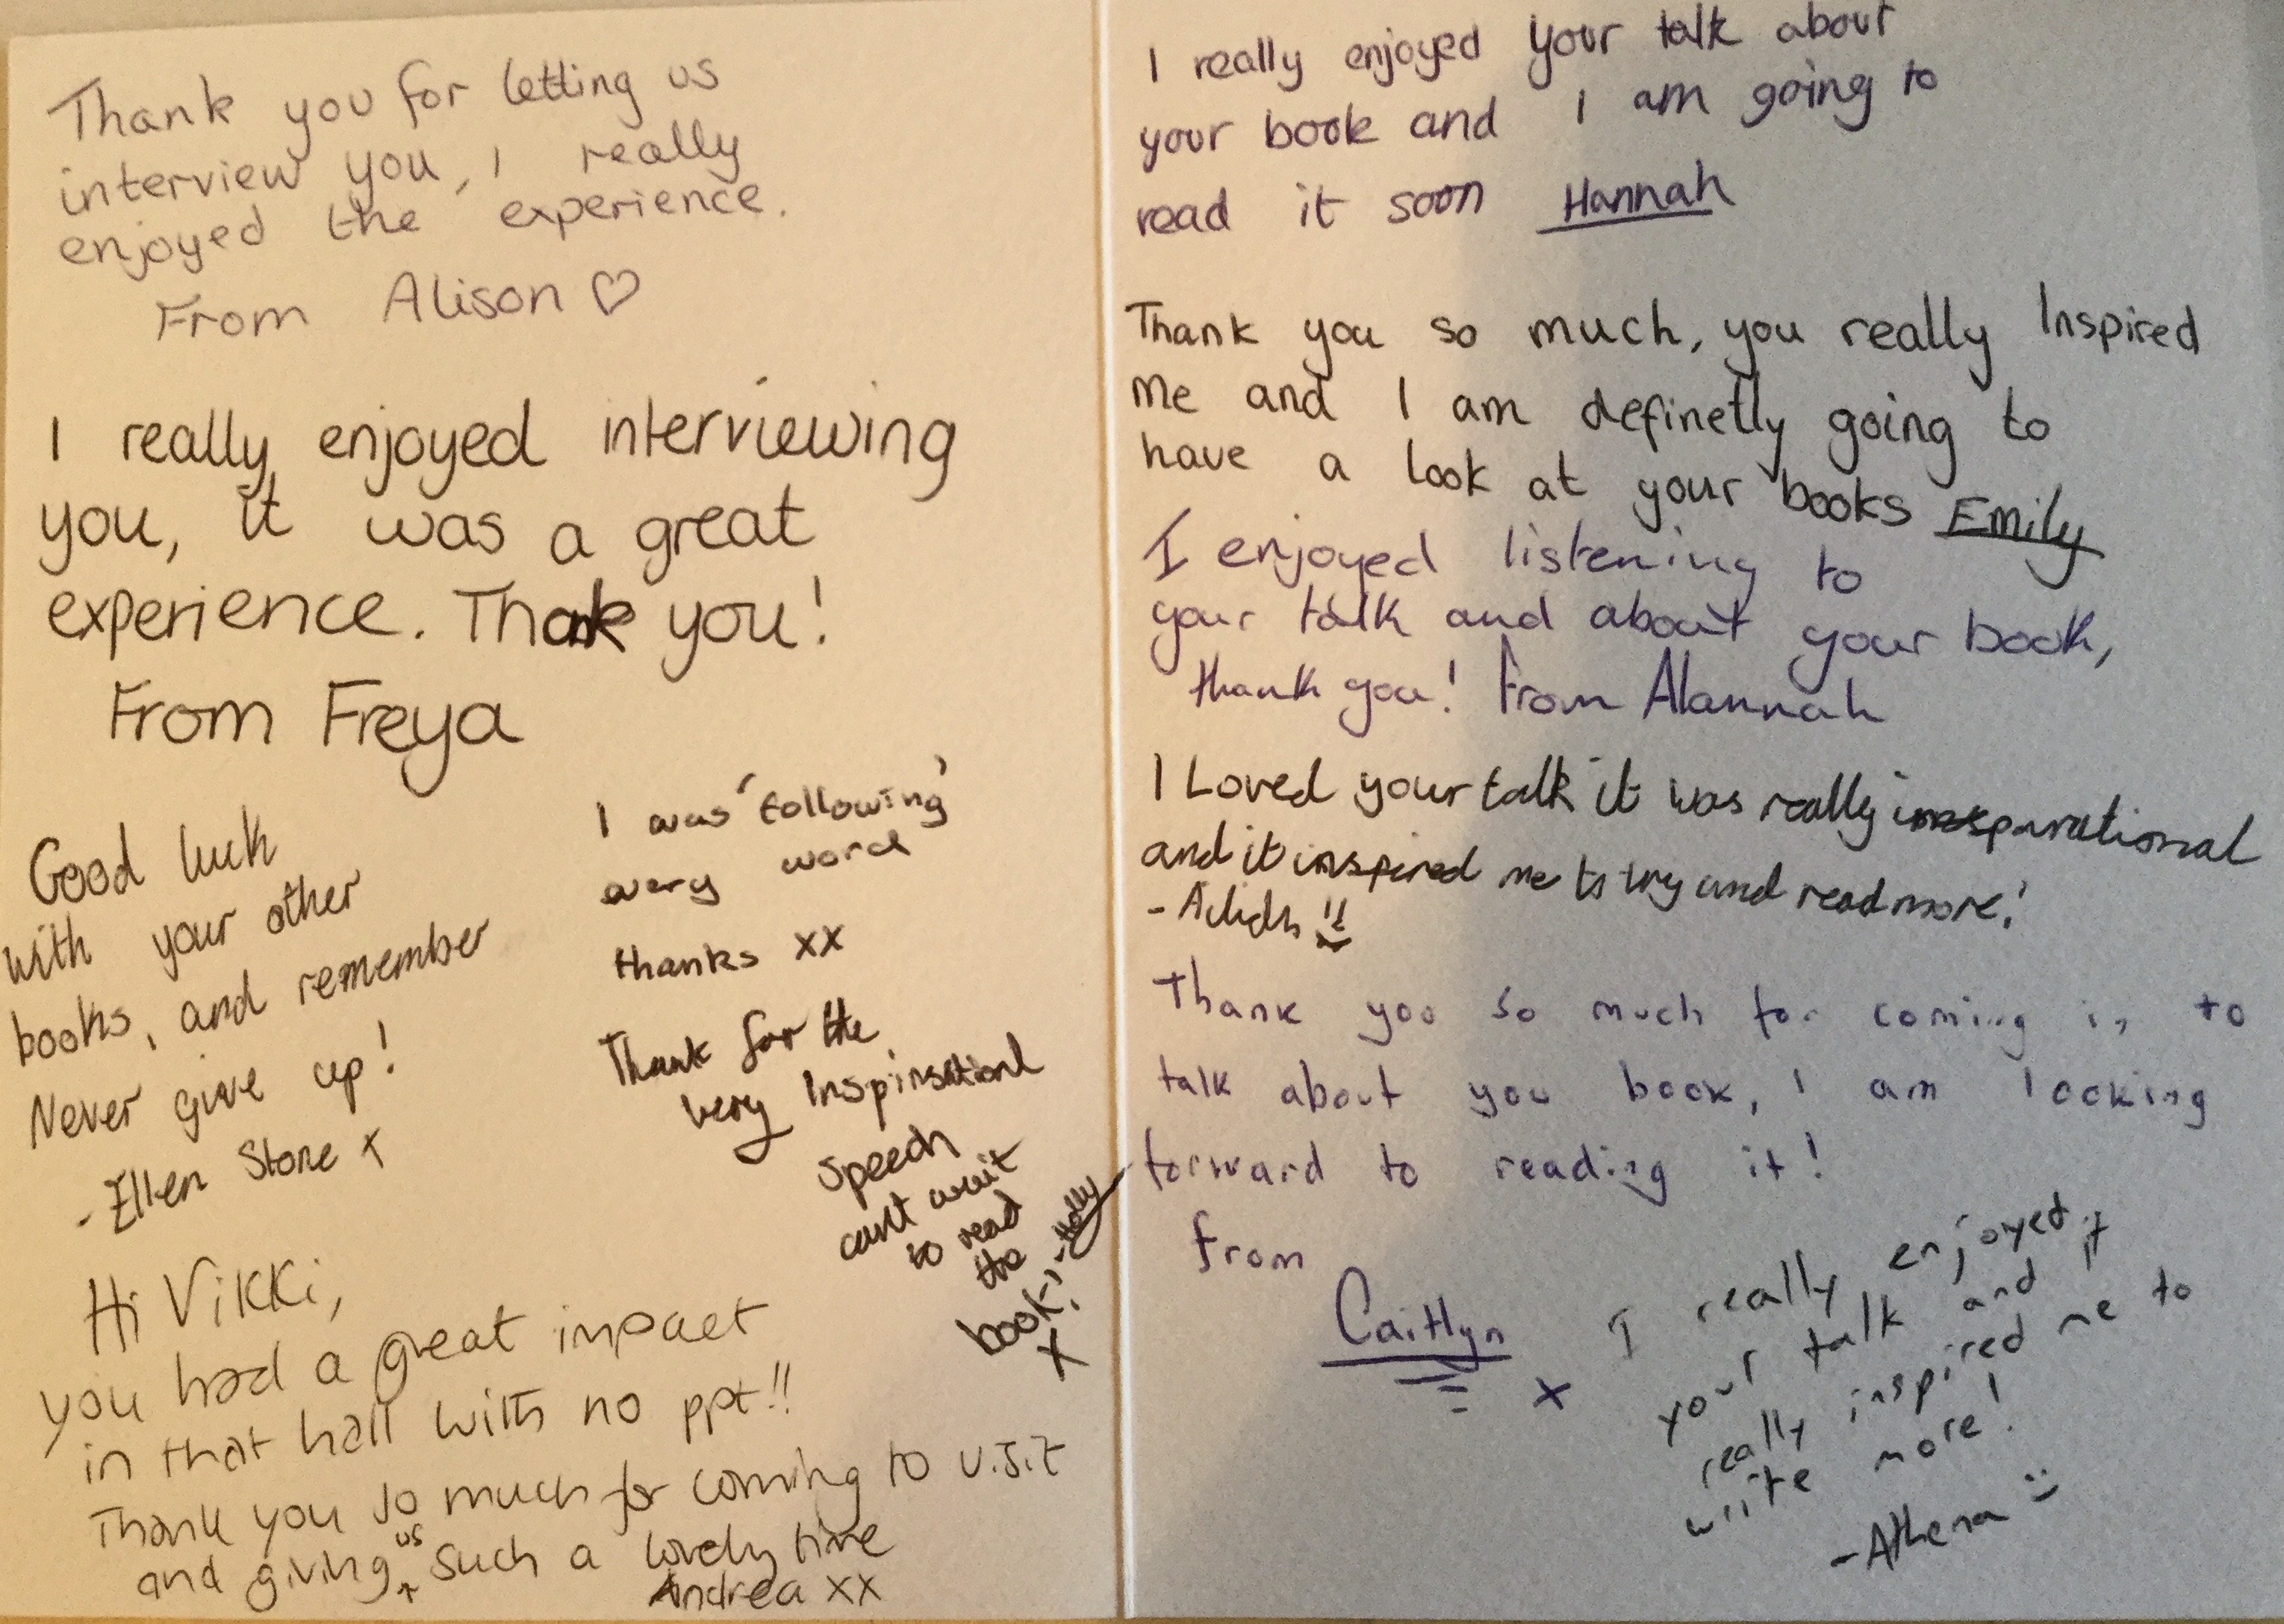 Thank you for letting us
interview you, I really
enjoyed the experience.
From Alison ♡
I really enjoyed interviewing
you, it was a great
experience. Thank you!
From Freya
Good luck
with your other
books, and remember
Never give up!
- Ellen Stone x
I was 'following'
every word
thanks xx
Thank for the
very Inspirational
Speech
can't wait
to read
the
book! - Holly
X
Hi Vikki,
you had a great impact
in that hall with no ppt!!
Thank you so much for coming to
and giving us such a lovely time
Andrea xx
I really enjoyed your talk about
your book and I am going to
read it soon Hannah
Thank you so much, you really Inspired
me and I am definetly going to
have a look at your books Emily
I enjoyed listening to
your talk and about your book,
thank you! From Alannah
I Loved your talk it was really
and it inspired me to try and read more!
Thank you so much for coming in to
talk about you book, I am looking
forward to reading it!
from
Caitlyn
x
I really enjoyed
your talk and it
really inspired me to
write more!
- Athena :)